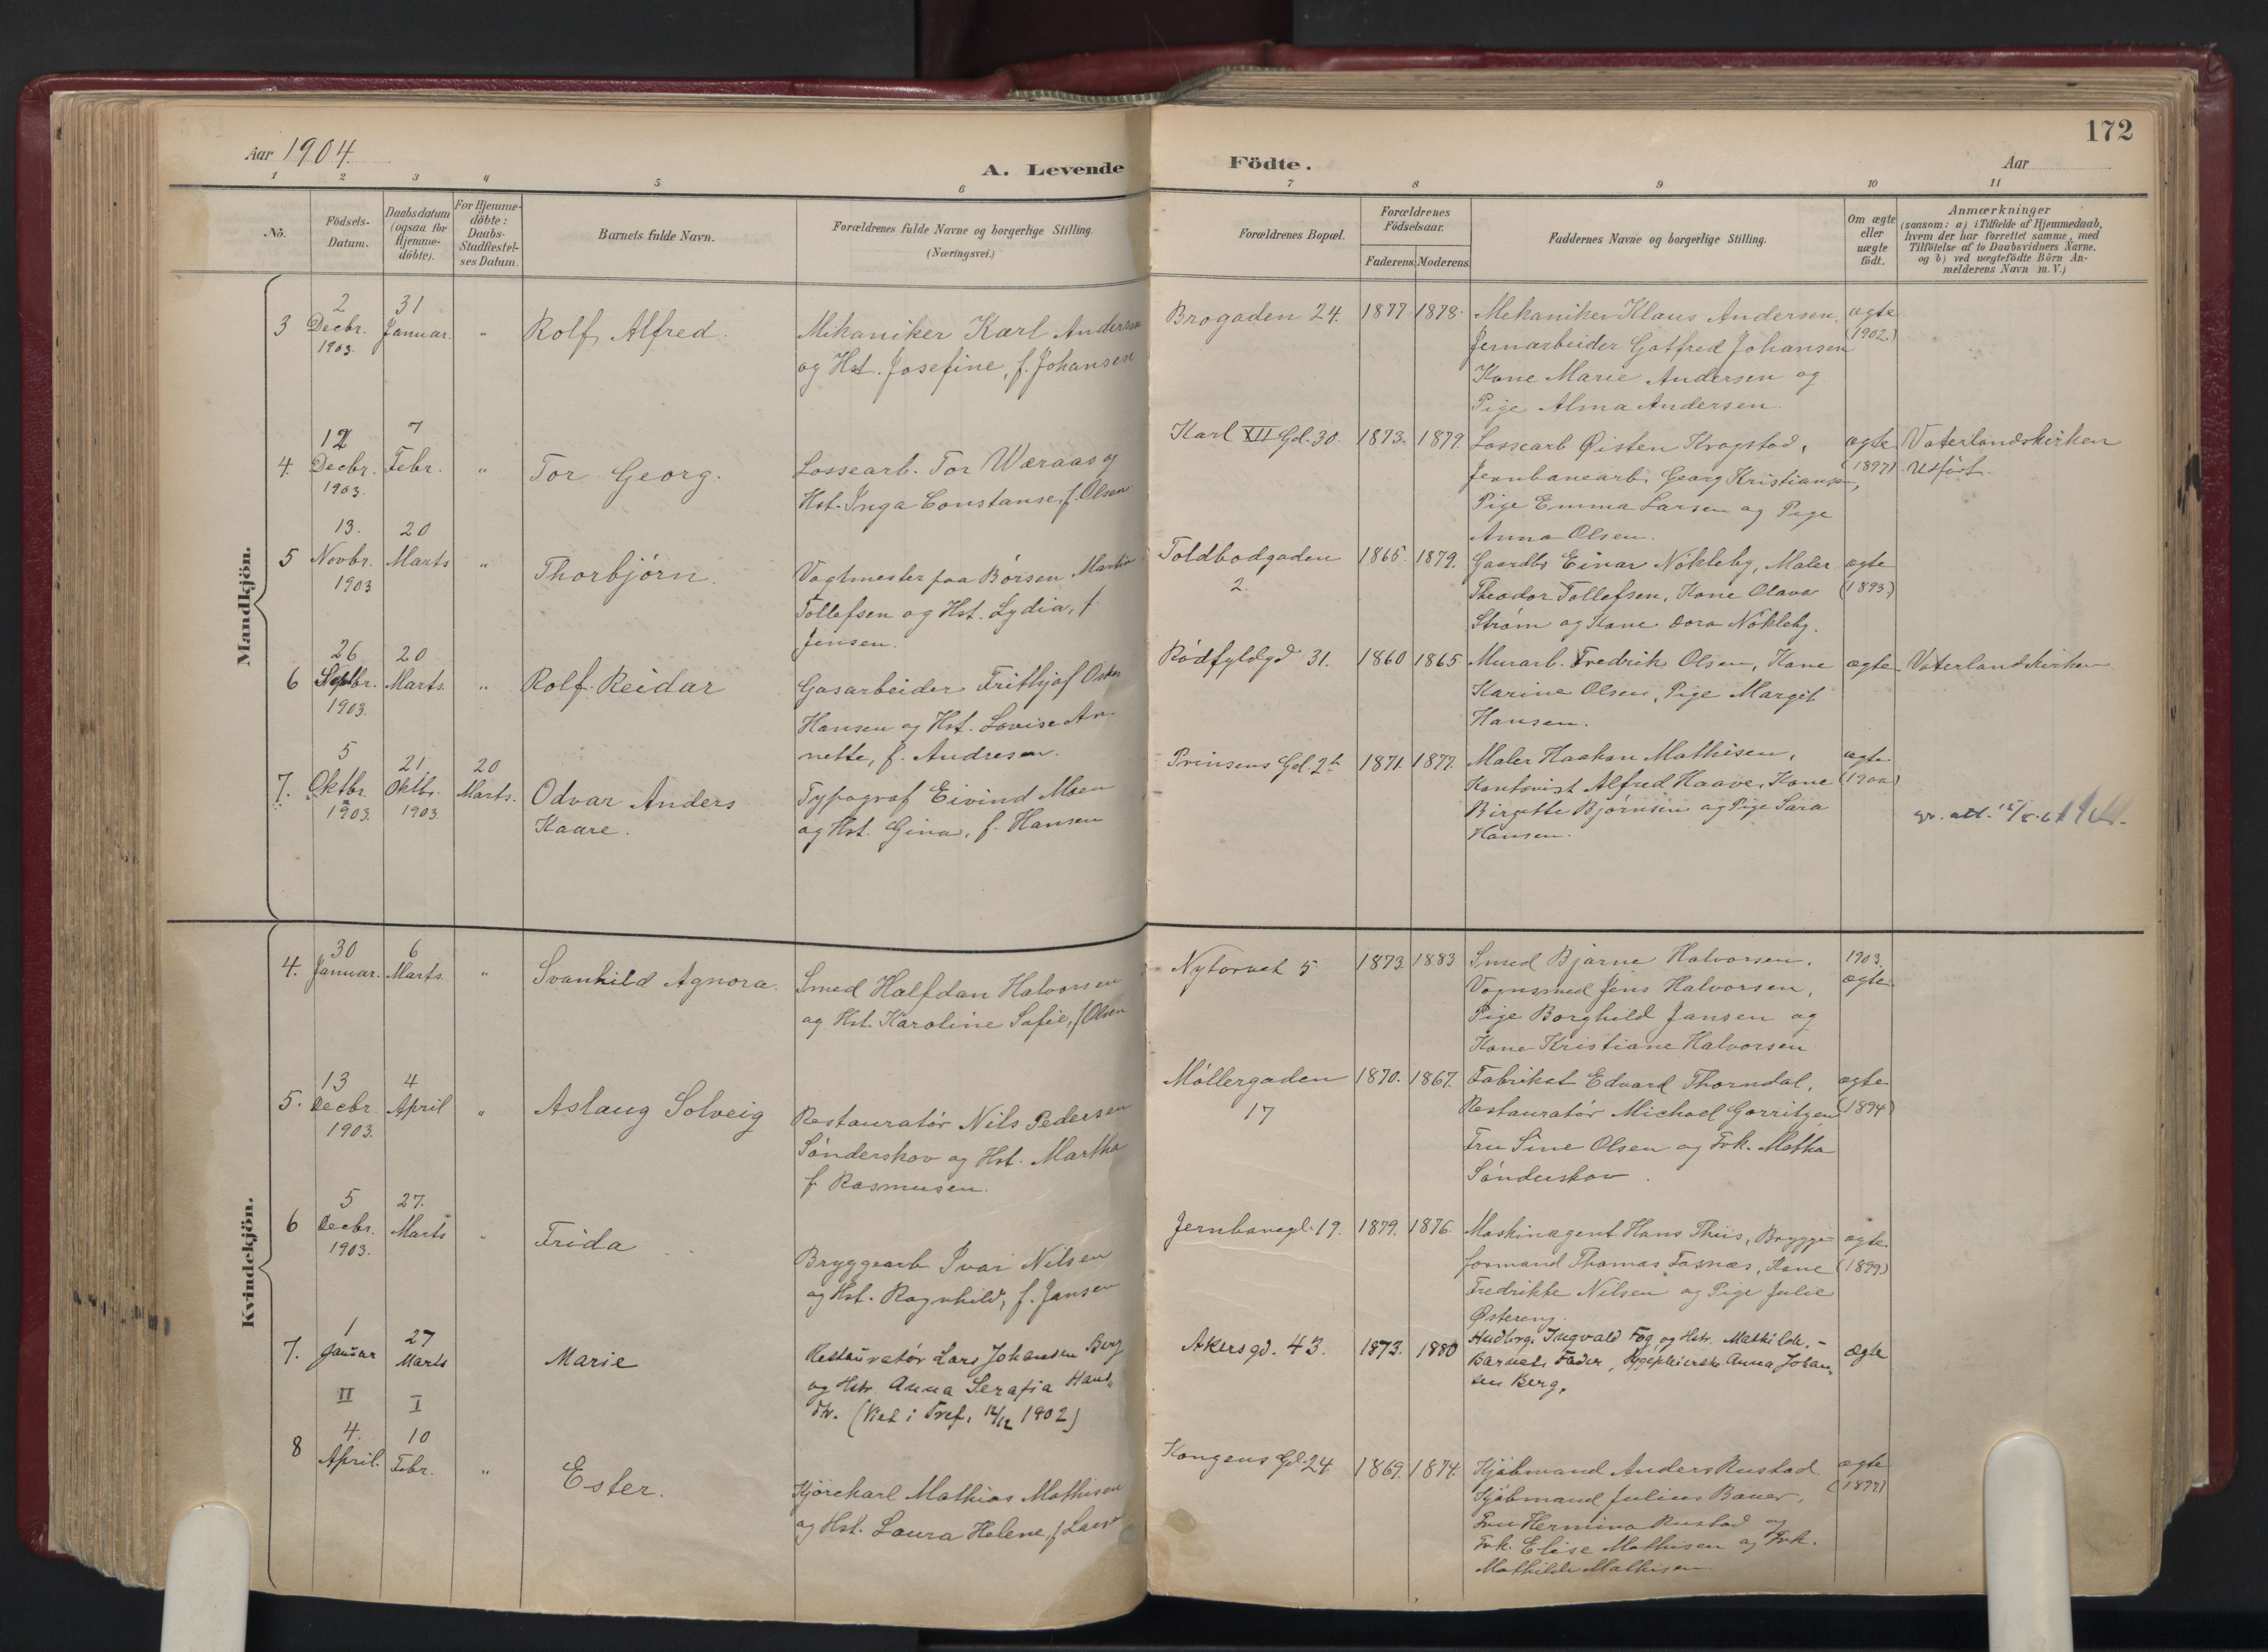 172
Aar 1904.
A. Levende Födte.
Aar
1 2 3 4 5 6 7 8 9 10 11
No.
Födsels-Datum.
Daabsdatum (ogsaa for Hjemme-döbte).
For Hjemme-döbte: Daabs-Stadfæstel-ses Datum.
Barnets fulde Navn.
Forældrenes fulde Navne og borgerlige Stilling.
(Næringsvei.)
Forældrenes Bopæl.
Forældrenes Födselsaar.
Faderens. Moderens.
Faddernes Navne og borgerlige Stilling.
Om ægte eller uægte födt.
Anmærkninger
(saasom: a) i Tilfælde af Hjemmedaab, hvem der har forrettet samme, med Tilföielse af to Daabsvidners Navne, og b) ved uægtefödte Börn An-melderens Navn m. V.)
Mandkjön.
3
2 Decbr. 1903.
31 Januar.
"
Rolf Alfred.
Mekaniker Karl Andersen
og Hst. Josefine, f. Johansen
Brogaden 24.
1877 1878.
Mekaniker Klaus Andersen.
Jernarbeider Gotfred Johansen
Kone Marie Andersen og
Pige Alma Andersen
ægte (1902.)
4.
12 Decbr. 1903.
7 Febr.
"
Tor Georg.
Lossearb. Tor Weraas og
Hst. Inga Constanse, f. Olsen
Karl XII Gd. 30.
1873. 1879.
Lossearb Øisten Krogstad,
Jernbanearb. Georg Kristiansen,
Pige Emma Larsen og Pige
Anna Olsen.
ægte (1897)
Vaterlandskirken
Utført.
5
13. Novbr. 1903
20 Marts
"
Thorbjørn.
Vagtmester paa Børsen Martin
Tollefsen og Hst. Lydia, f.
Jensen.
Toldbodgaden
2.
1865. 1879.
Gaardbr Einar Nökleby, Maler
Theodor Tollefsen, Kone Olava
Strøm og Kone Dora Nökleby.
ægte (1893.)
6
26 Septbr. 1903.
20 Marts.
"
Rolf Reidar
Gasarbeider Frithjof Oskar
Hansen og Hst. Lovise An-
nette, f. Andresen.
Rödfyldgd 31.
1860 1865
Murarb. Fredrik Olsen, Kone
Karine Olsen, Pige Margit
Hansen.
ægte
Vaterlandskirken
7.
5 Oktbr. 1903.
21 Oktbr. 1903
20 Marts.
Odvar Anders
Kaare.
Typograf Eivind Moen
og Hst. Gina, f. Hansen
Prinsens Gd. 2b
1871. 1877.
Maler Haakon Mathisen,
Kontorist Alfred Haave, Kone
Birgitte Bjørnsen og Pige Sara
Hansen.
ægte (1900)
Kvindekjön.
4.
30 Januar.
6 Marts.
"
Svanhild Agnora.
Smed Halfdan Halvorsen
og Hst. Karoline Sofie, f. Olsen
Nytorvet 5
1873. 1883
Smed Bjarne Halvorsen.
Vognsmed Jens Halvorsen,
Pige Borghild Jansen og
Kone Kristiane Halvorsen
1903. ægte
5.
13 Decbr. 1903.
4 April
"
Aslaug Solveig
Restauratör Nils Pedersen
Sönderskov og Hst. Martha
f Rasmusen.
Möllergaden
17
1870. 1867.
Fabrikat Edvard Thorndal,
Restauratör Michael Gorritzen
Fru Sine Olsen og Frk. Metha
Sönderskov.
ægte (1894)
6
5 Decbr. 1903.
27. Marts
"
Frida
Bryggearb Ivar Nilsen
og Hst. Ragnhild, f. Jansen
Jernbanegd. 19.
1879. 1876.
Maskinagent Hans Thiis, Brygge-
formand Thomas Fasnæs, Kone
Fredrikke Nilsen og Pige Julie
Østereng.
ægte (1899)
7.
1 Januar
27 Marts
Marie
Restauratör Lars Johansen Berg
og Hstr. Anna Serafia Hans"
dtr. (Viet i Tref. 12/12 1902)
Akersgd. 43.
1873. 1880
Hudlrgr. Ingvald Fog og Hstr. Mathilde, -
Barnets Fader, Sygepleierske Anna Johan"
sen Berg.
ægte
II I
8
4. April.
10 Febr.
"
Ester.
Kjörekarl Mathias Mathisen
og Hst. Laura Helene, f Larsen
Kongens Gd. 24.
1869. 1874.
Kjöbmand Anders Rustad
Kjöbmand Julius Bauer,
Fru Hermina Rustad og
Frk. Elise Mathisen og Frk.
Mathilde Mathisen
ægte (1897)